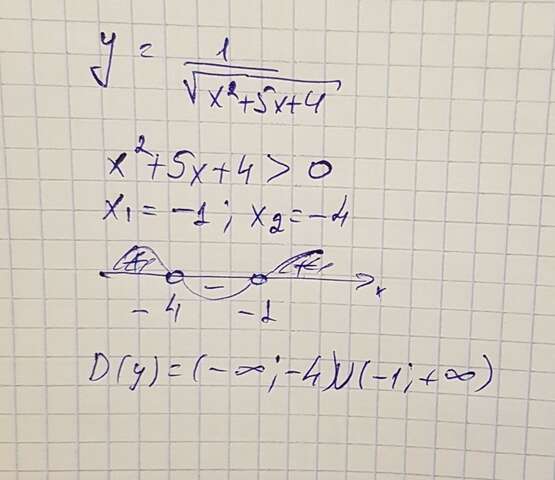 y = 1/√(x²+5x+4)
x²+5x+4 > 0
x₁ = -1 ; x₂ = -4
+ - + x
-4 -1
D(y) = (-∞; -4)∪(-1; +∞)